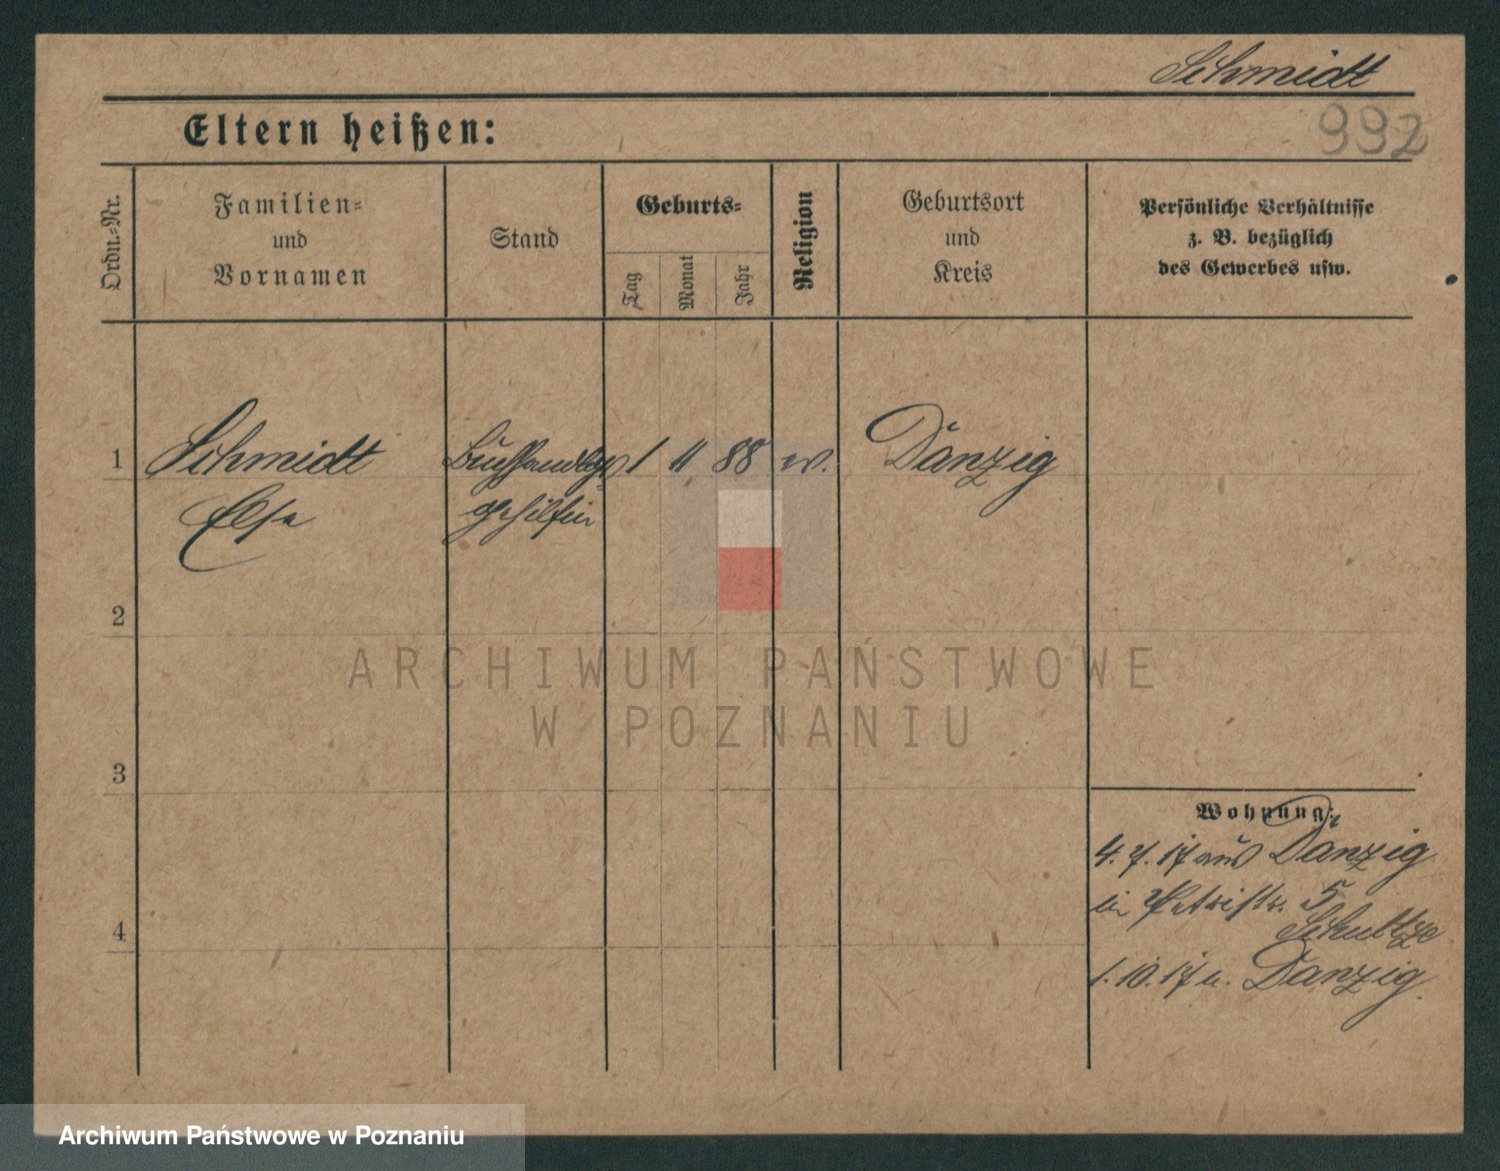 Schmidt
992
Eltern heißen:
Ordn.-Nr.
Familien-
und
Vornamen
Stand
Geburts-
Tag
Monat
Jahr
Religion
Geburtsort
und
Kreis
Persönliche Verhältnisse
z. B. bezüglich
des Gewerbes usw.
1 Schmidt Buchhandlgs 1 11 88 ev. Danzig
Else gehilfin
2
ARCHIWUM PAŃSTWOWE
W POZNANIU
3
Wohnung:
4. 7. 17 aus Danzig
in Petristr. 5
Schultze
1. 10. 17 n. Danzig.
4
Archiwum Państwowe w Poznaniu